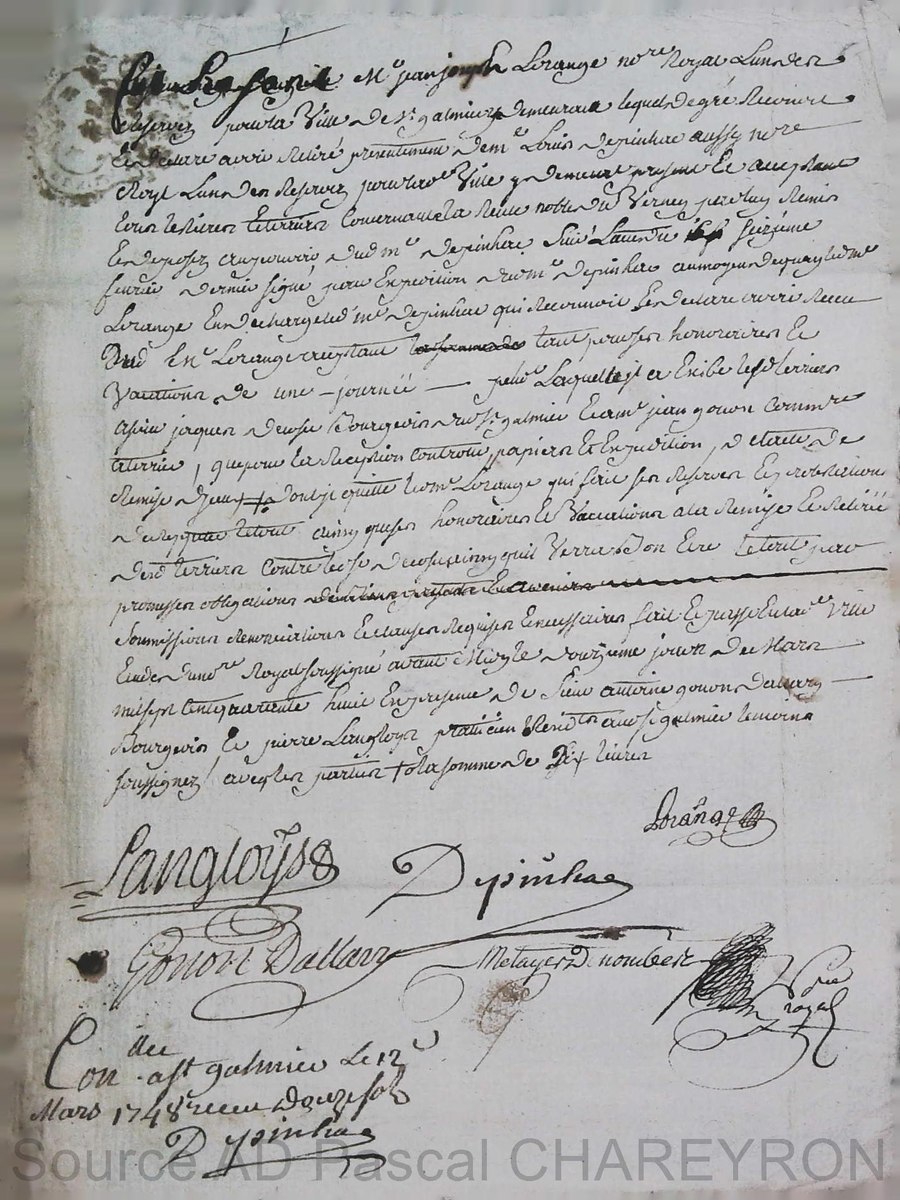 Mr jean joseph Lorange nore Royal Lun des
reservez pour la Ville de St galmier y demeurant lequel de gré Reconnoit
Et declare avoir Retiré presentement de mr Louis depinhac aussy nore
Royl Lun des Reservez pour lade Ville y demeurant present Et acceptant
tous les titres terriers Concernant la Rente noble du Verney par luy Remis
Et deposez au pouvoir dud mr depinhac suivt Lacte du seizieme
fevrier dernier signé pour Expedition dud mr depinhac au moyen de quoy led mr
Lorange En decharge led mr depinhac qui Reconnoit Et declare avoir Receu
Dud mr Lorange acceptant la somme de tant pour ses honoraires Et
Vacations de une journée pendt Laquelle il a Exibé lesd terriers
a sieur jaques Bourgeois dud St galmier Et a mr jean gonon Commre
a terrier, que pour la Reception Controlle, papiers Et Expedition, d
Remise dont il quitte led mr Lorange qui fait ses Reserves Et protestations
de Repeter le tout ainsy que ses honoraires Et Vacations a la Remise Et Retiré
desd terriers contre le sr ainsy quil Verra bon Etre le tout par
promesses obligations
soumissions Renonciations Et clauses Requises Et necessaires fait Et passé En lade Ville
Etude du nore Royal soussigné avant Midy le douzieme jour de Mars
mil sept Cent quarante huit En presence de sieur antoine gonon dallary
Bourgeois Et pierre Langloys praticien Residts aud St galmier temoins
soussignez avec les parties † la somme de Dix livres
Lorange
Langloys
Depinhac
Gonon Dallary
Metayer D nombert
Nore royal
Conllee a St galmier le 12e
Mars 1748 receu douze sols
Depinhac
Source AD Pascal CHAREYRON